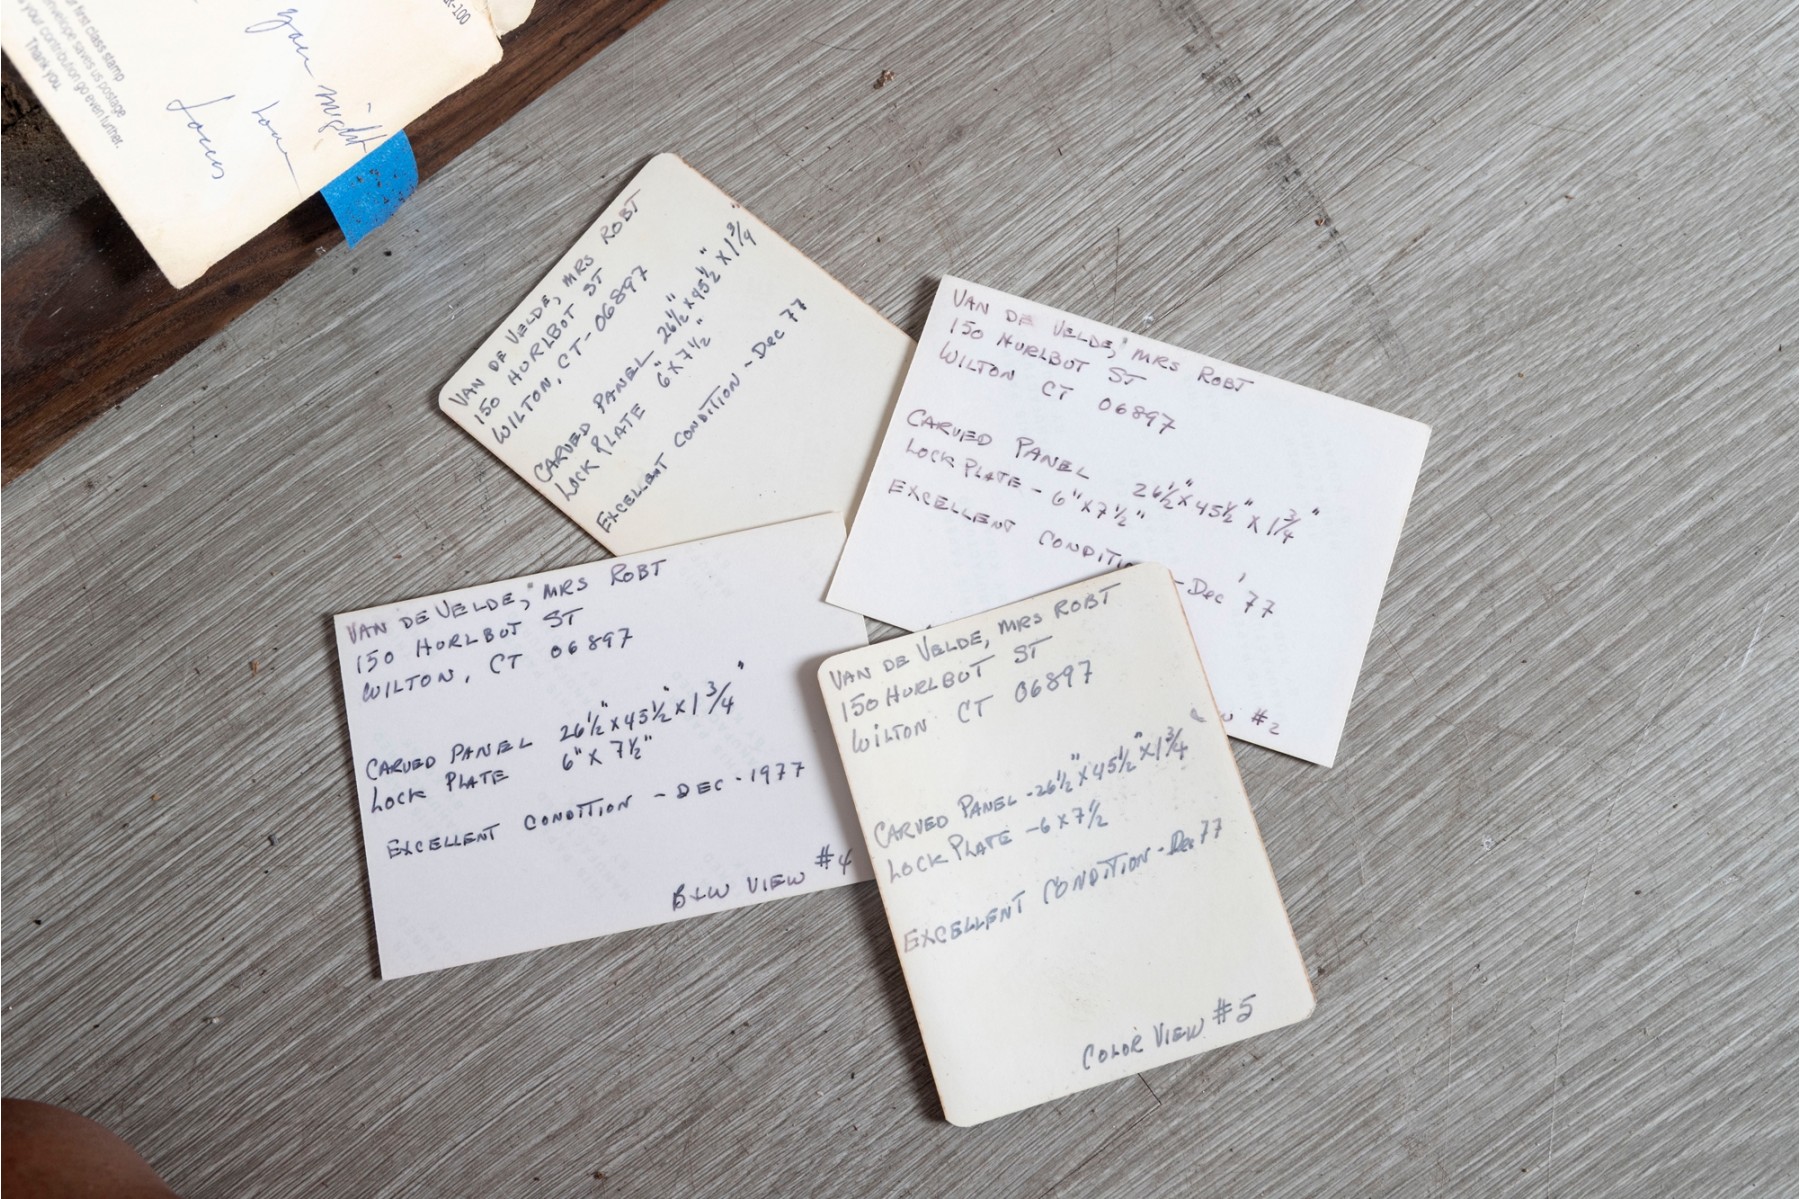 c-100
you might
have
Louis
our first class stamp
envelope saves us postage
your contribution go even further.
Thank you.
VAN DE VELDE, MRS ROBT
150 HURLBOT ST
WILTON, CT-06897
CARVED PANEL 26½" x 45½" x 1¾"
LOCK PLATE 6" x 7½"
EXCELLENT CONDITION - Dec 77
VAN DE VELDE, MRS ROBT
150 HURLBOT ST
WILTON CT 06897
CARVED PANEL 26½" x 45½" x 1¾"
LOCK PLATE - 6" x 7½"
EXCELLENT CONDITION - Dec '77
#2
VAN DE VELDE, MRS ROBT
150 HURLBOT ST
WILTON, CT 06897
CARVED PANEL 26½" x 45½" x 1¾"
LOCK PLATE 6" x 7½"
EXCELLENT CONDITION - DEC - 1977
B+W VIEW #4
VAN DE VELDE, MRS ROBT
150 HURLBOT ST
WILTON CT 06897
CARVED PANEL - 26½" x 45½" x 1¾"
LOCK PLATE - 6 x 7½
EXCELLENT CONDITION - Dec 77
COLOR VIEW #5